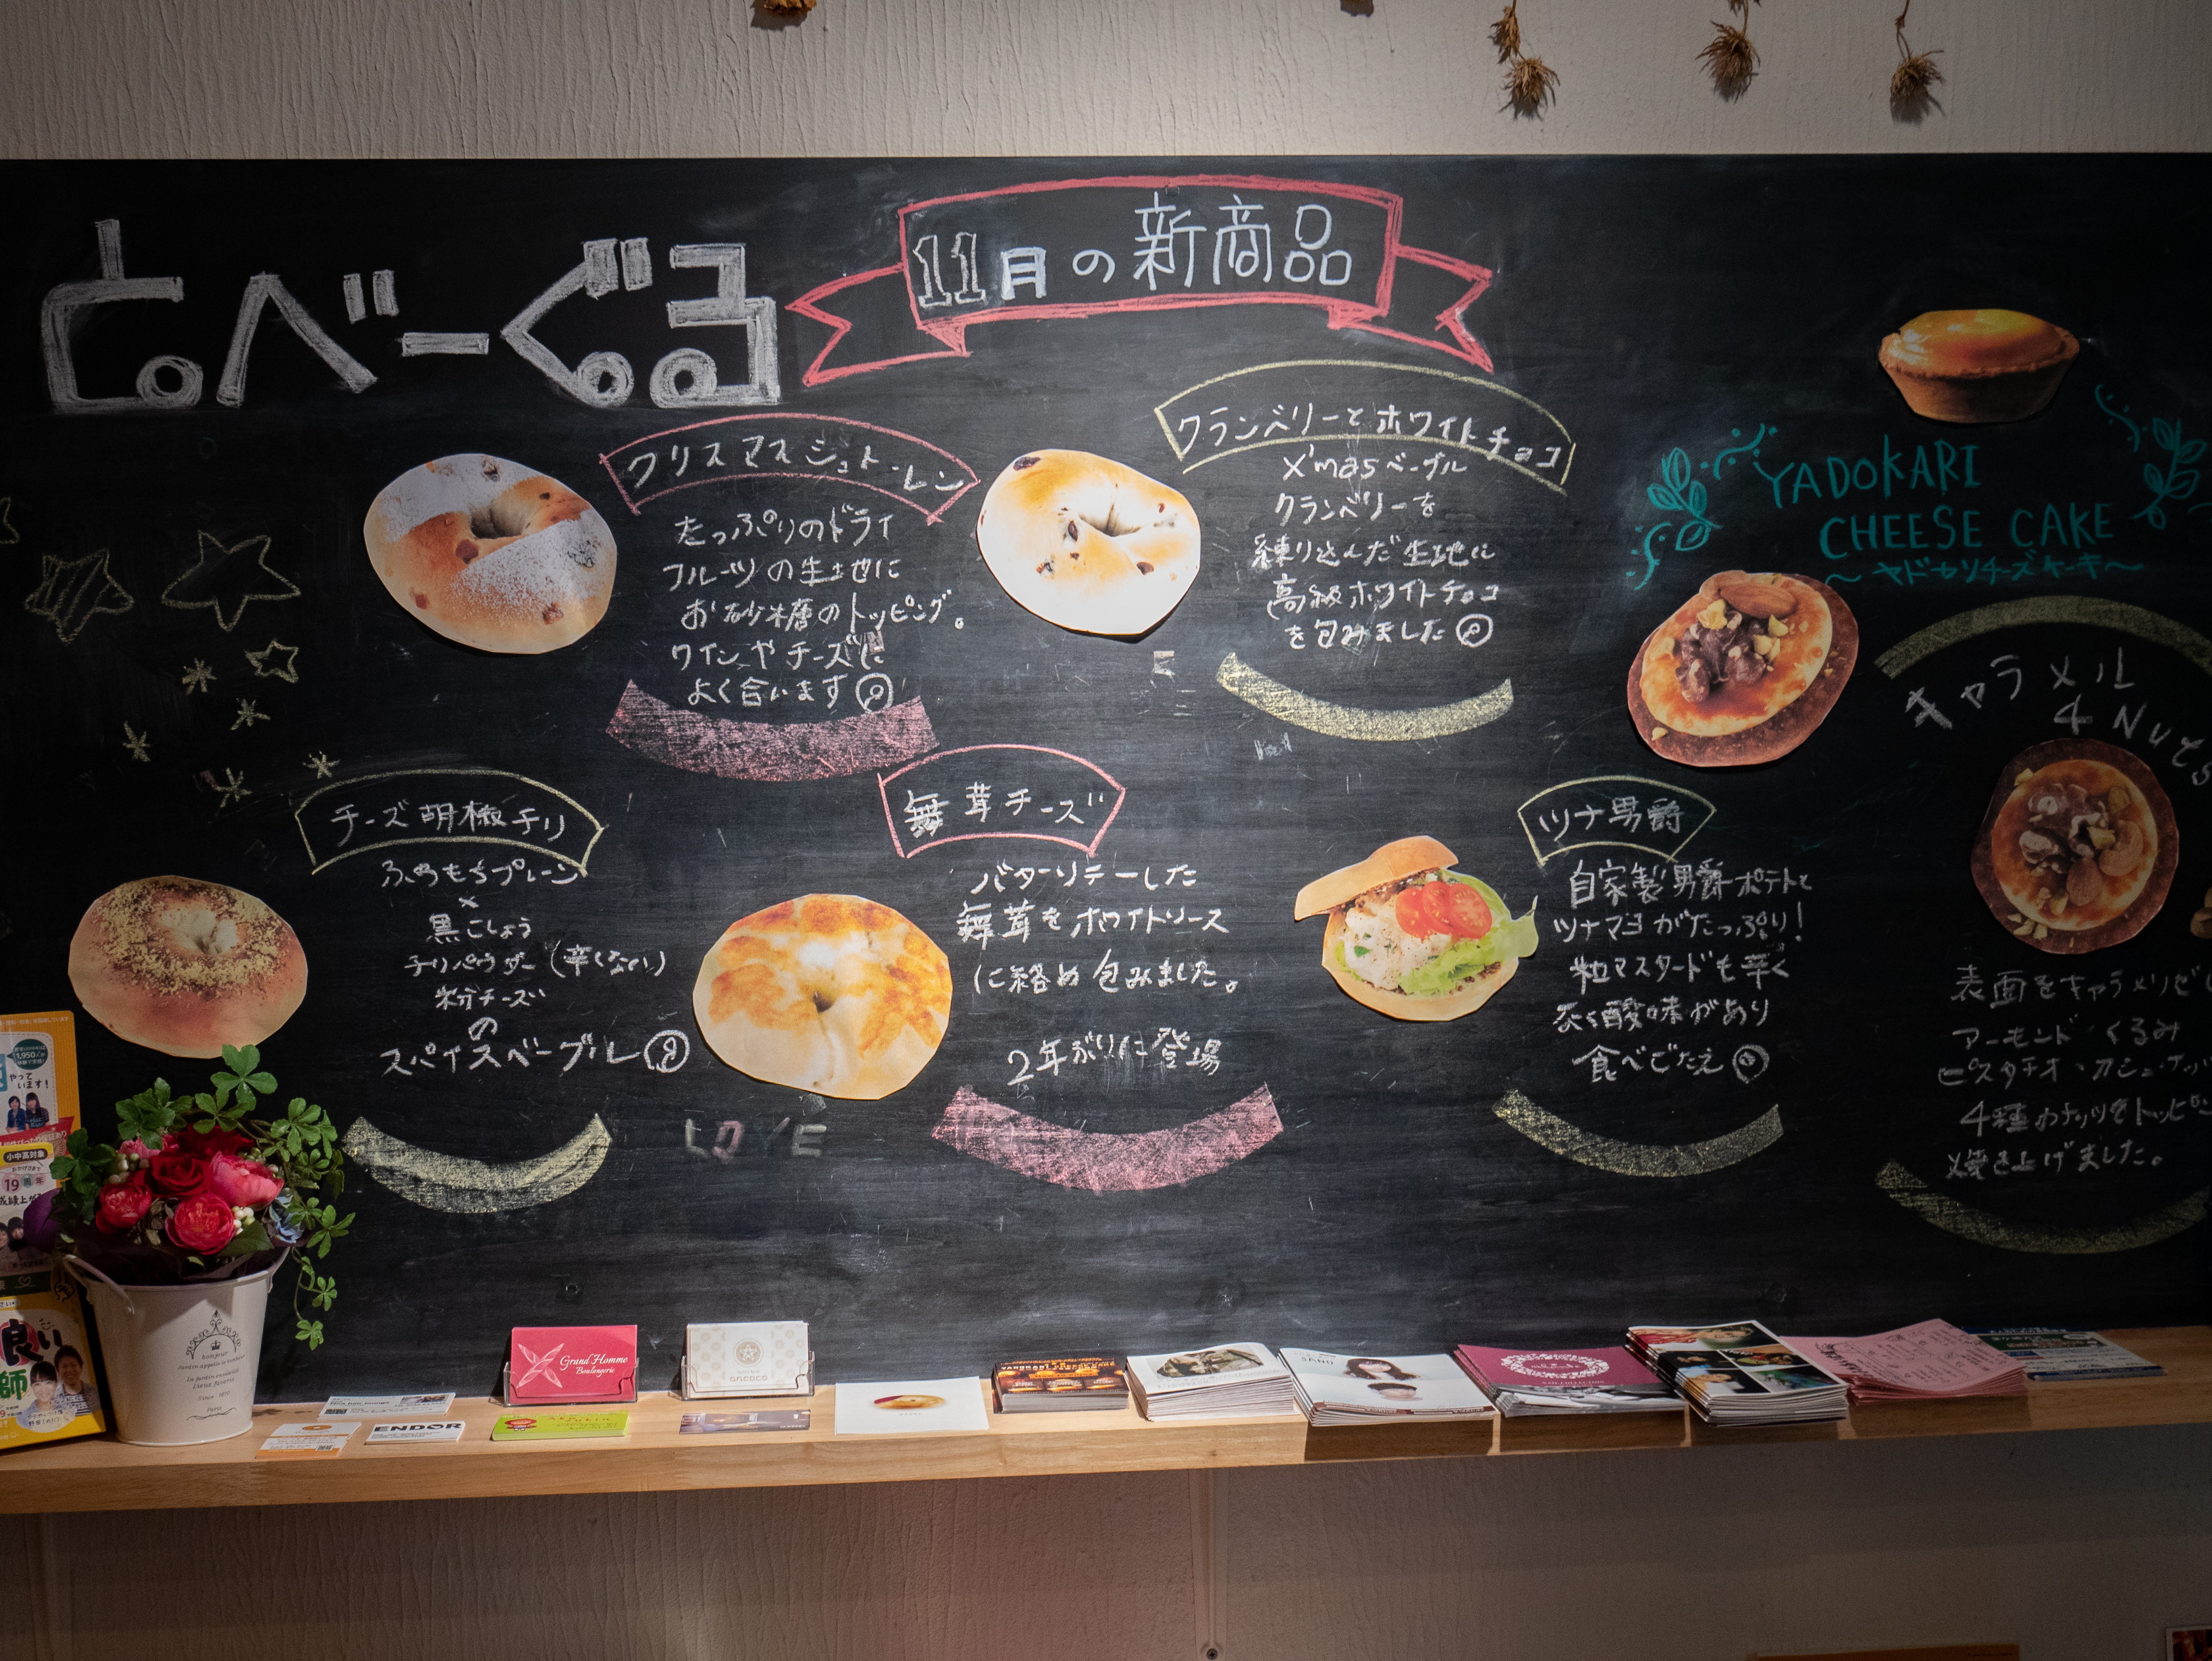 とべーぐる
11月の新商品
クリスマスシュトーレン
たっぷりのドライ
フルーツの生地に
お砂糖のトッピング。
ワインやチーズに
よく合います
クランベリーとホワイトチョコ
X'masベーグル
クランベリーを
練り込んだ生地に
高級ホワイトチョコ
を包みました
YADOKARI
CHEESE CAKE
〜ヤドカリチーズケーキ〜
キャラメル
4 Nuts
表面をキャラメリゼ
アーモンド・くるみ
ピスタチオ・カシューナッ
4種のナッツをトッピ
焼き上げました。
チーズ胡椒チリ
ふわもちプレーン
×
黒こしょう
チリパウダー(辛くない)
粉チーズ
の
スパイスベーグル
舞茸チーズ
バターソテーした
舞茸をホワイトソース
に絡め包みました。
2年ぶりに登場
ツナ男爵
自家製男爵ポテトと
ツナマヨがたっぷり!
粒マスタードも辛く
酸味があり
食べごたえ
LOVE
1,950
やって
います!
小中高対象
19周年
良い
師
bonjour
Since 1870
Paris
ENDOR
Grand Homme
Boulangerie
ancoco
SAND